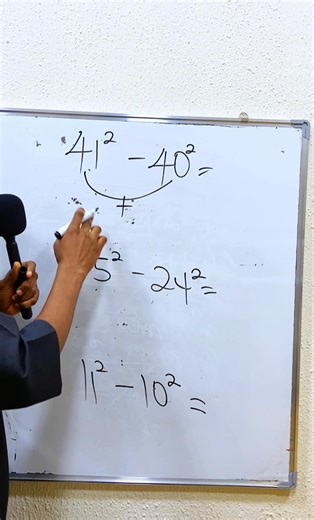 41² - 40² =
+
5² - 24² =
11² - 10² =